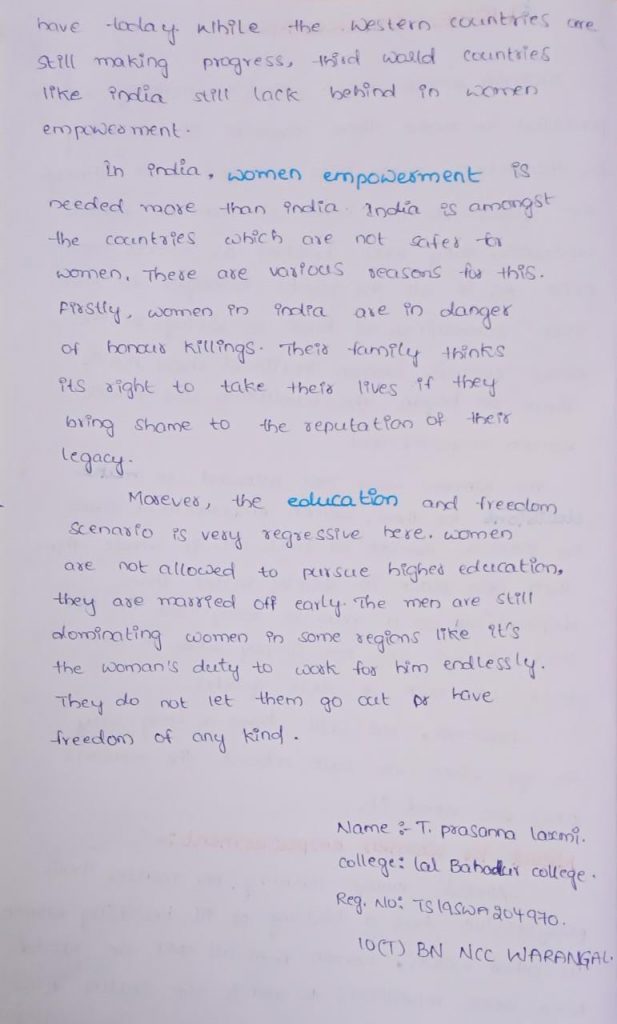 have today. While the western countries are
still making progress, third world countries
like india still lack behind in women
empowerment.
In india, women empowerment is
needed more than india. India is amongst
the countries which are not safer for
women. There are various reasons for this.
Firstly, women in india are in danger
of honour killings. Their family thinks
its right to take their lives if they
bring shame to the reputation of their
legacy.
Morever, the education and freedom
scenario is very regressive here. women
are not allowed to pursue higher education,
they are married off early. The men are still
dominating women in some regions like it's
the woman's duty to work for him endlessly.
They do not let them go out or have
freedom of any kind.
Name :- T. prasanna laxmi.
college: lal Bahadur college.
Reg. No: TS19SWA204970.
10(T) BN NCC WARANGAL.